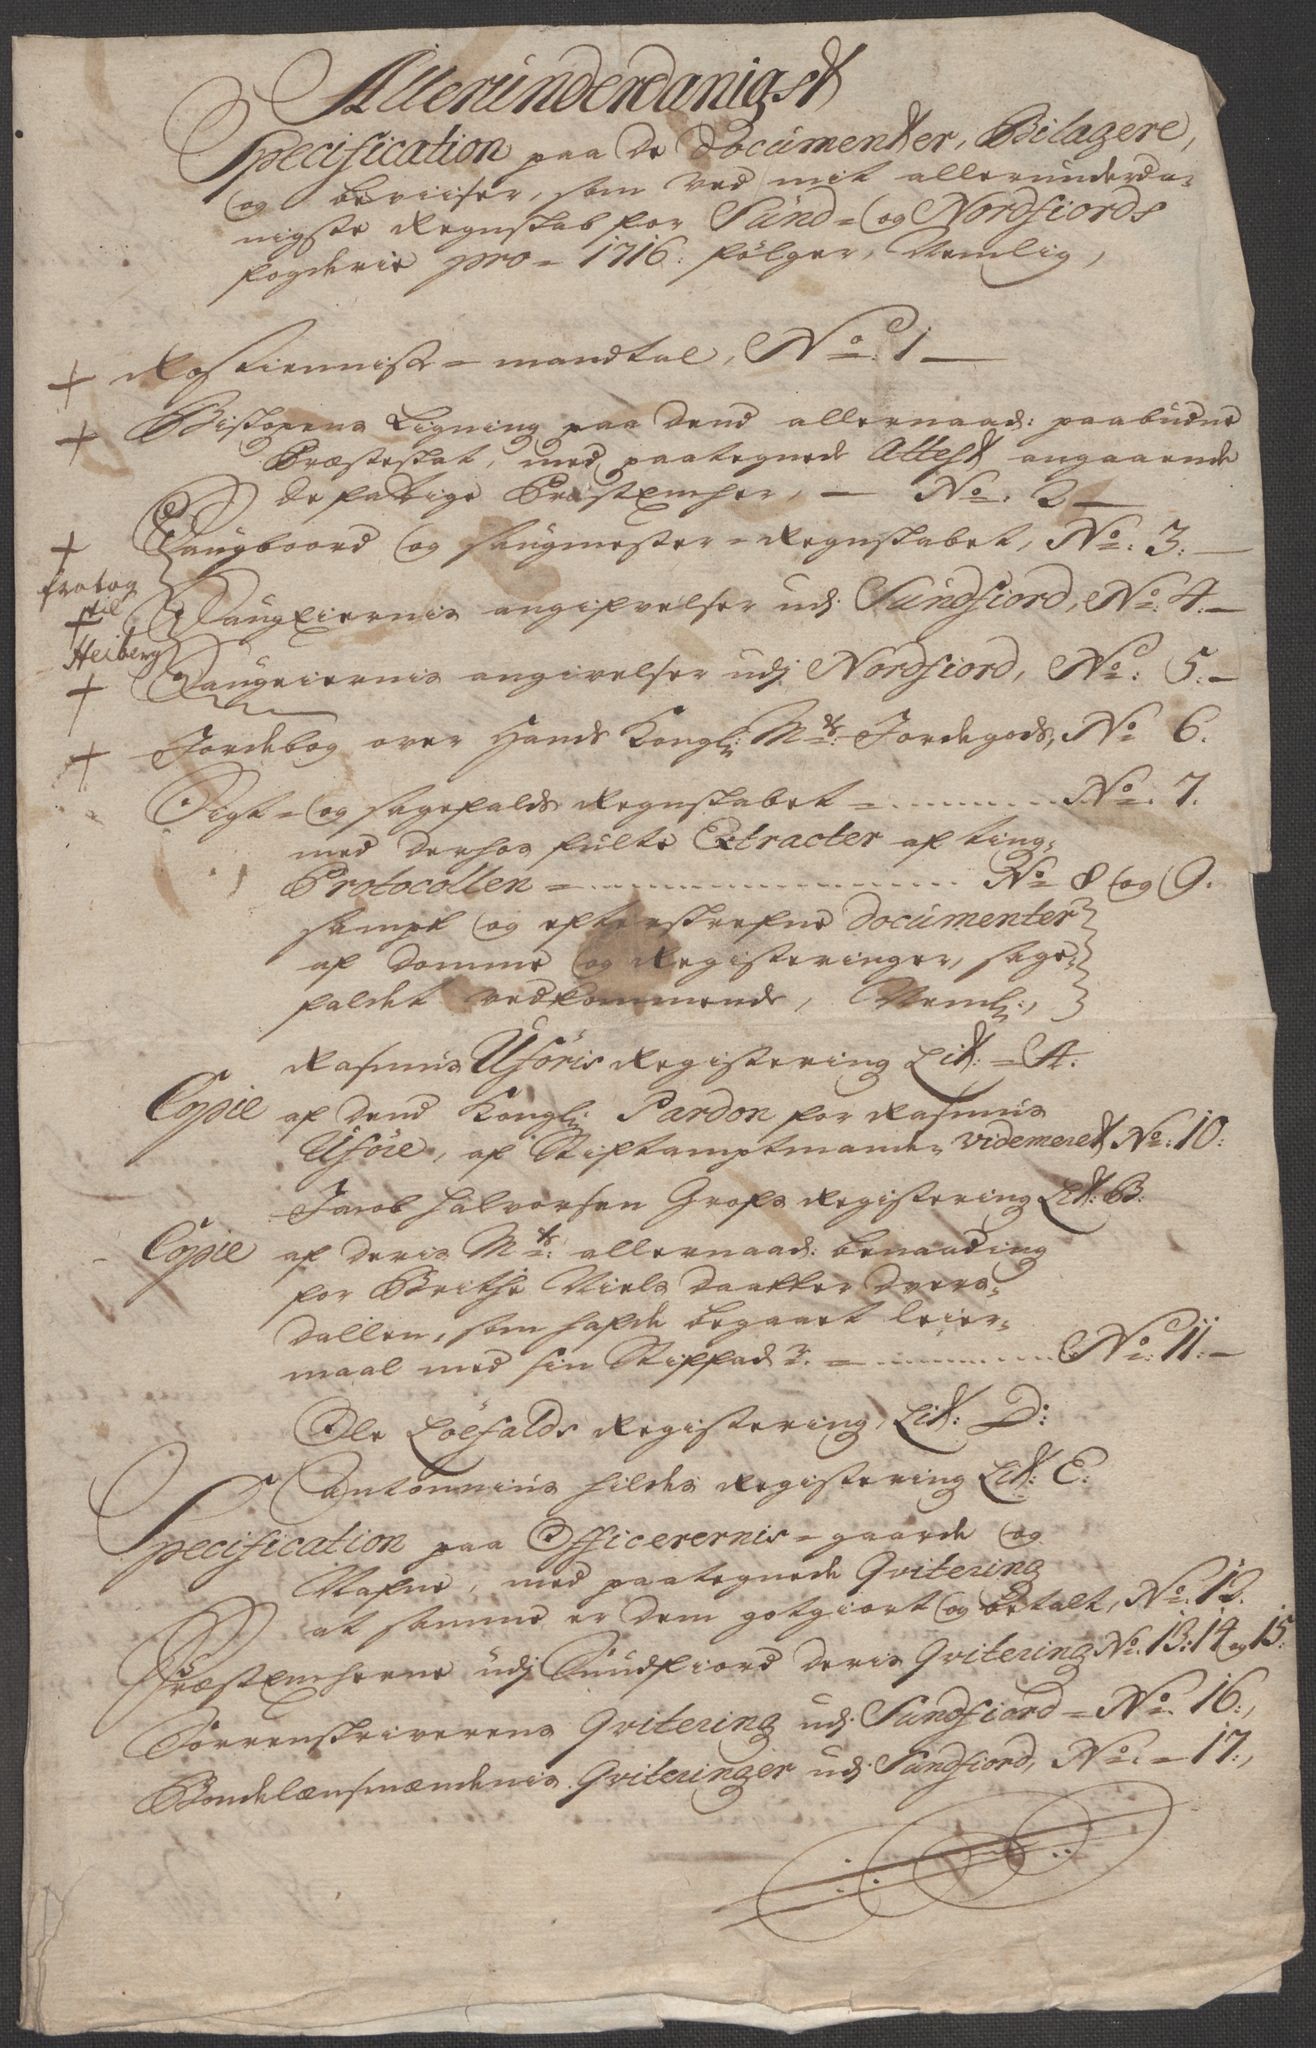 Alleründerdanigst
Specification paa de Documenter, Bilagere,
og beviiser, som ved mit allerunderda-
nigste Regnskab for Sünd- og Nordfiords
fogderie pro - 1716. følger, Nemlig,
+ Rostiennist - mandtal, No. 1 —
+ Biskopens Ligning paa dend allernaad: paabudne
Præsteskat, med paategnede Attest angaaende
de fattige Præstemcher, — No. 2 —
+ Saugboord og Saugmester - Regnskabet, No. 3. —
fratog
til
Heiberg
+ Saugeiernis angifvelser udj Sündfiord, No. 4. —
+ Saugeiernis angivelser udj Nordfiord, No. 5. —
+ Jordebog over Hands Kongl: Mts: Jordegods, No 6.
Sigt- og sagefalds Regnskabet - No. 7.
med derhos fülte Extracter af ting-
Protocollen - No 8 og 9.
sampt og efterskrefne Documenter
af domme og Registeringer, sage-
faldet vedkommende, Neml:,
Rasmus Üföris Registering Lit: - A.
Copie af dend Kongl: Pardon for Rasmus
Üföre, af Stiftamptmanden videmeret No. 10:
Jacob Halvorsen Grofs Registering Lit: B:
Copie af deris Mts: allernaad: benaading
for Brithe Niels daatter Dvers-
dallen, som hafde begaaet leier-
maal med sin Stiffad3. - No. 11. —
Ole Löefalds Registering, Lit: D:
Antonnius Hildes Registering Lit: E:
Specification paa Officerernis - gaarde og
Nafne, med paategnede Qvitering
at samme er dem gotgiort og betalt, No. 12.
Præstemcherne udj Sundfiord deris Qvitering No. 13: 14 og 15:
Sorrenskriverens Qvitering udj Sündfiord - No. 16:,
Bondelænsmændenis Qviteringer udj Sundfiord, No. - 17:,